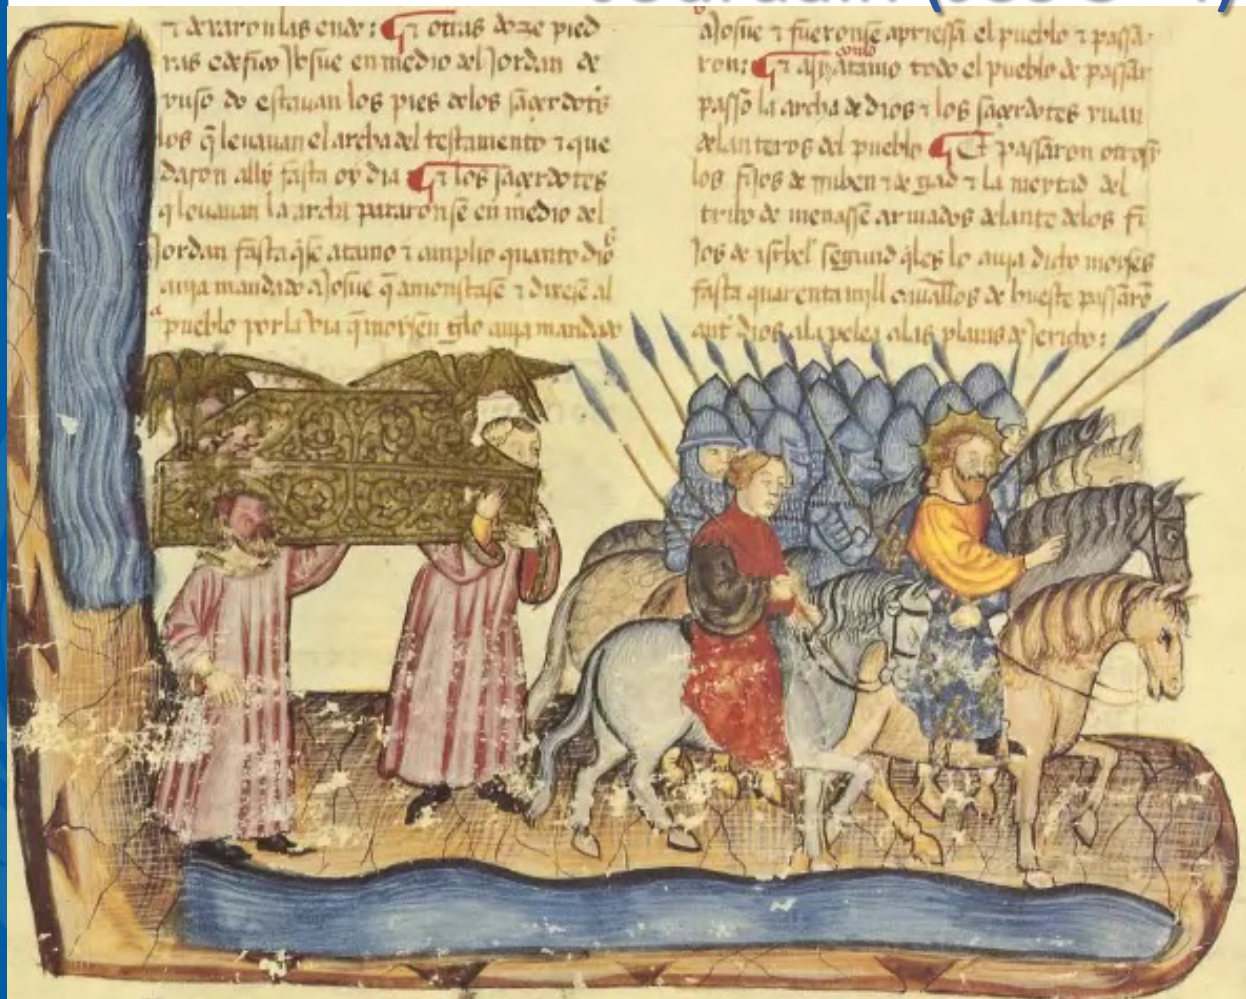 Jourdain (Jos 3 – 4)
⁊ dexaron las ende: ¶ ⁊ otras doze pied
ras edefico Josue en medio del Jordan de
yuso do estauan los pies delos saçerdotes
los q̃ leuauan el archa del testamento ⁊ que
daron ally fasta oy dia ¶ ⁊ los saçerdotes
q̃ leuauan la archa pararonse en medio del
Jordan fasta q̃se atamo ⁊ amplio quanto dios
auia mandado a Josue q̃ amonestase ⁊ dixese al
pueblo por la via q̃ moysen gelo auia mandado
a Josue ⁊ fueronse apriessa el pueblo ⁊ passa
ron: ¶ ⁊ asy como atamo todo el pueblo de passar
passo la archa de dios ⁊ los saçerdotes yuan
delanteros del pueblo ¶ Et passaron otrosy
los fijos de rruben ⁊ de gad ⁊ la meytad del
tribo de menasse armados delante delos fi
jos de isrl segund q̃les lo auia dicho moysen
fasta quarenta mill cauallos de hueste passarõ
ant dios ala pelea alas planas de Jericho: